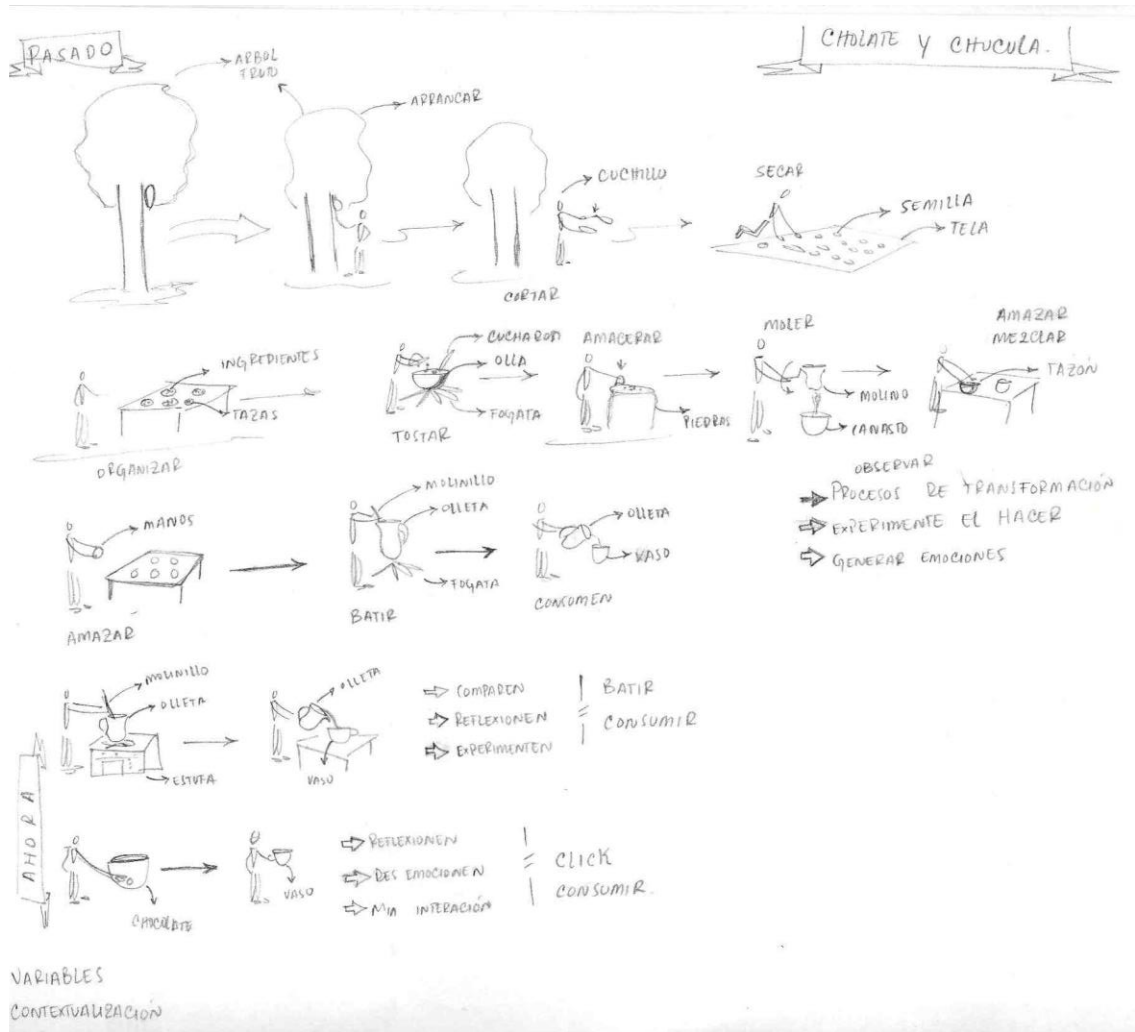 PASADO
CHOLATE Y CHUCULA.
ARBOL
FRUTO
ARRANCAR
CUCHILLO
CORTAR
SECAR
SEMILLA
TELA
INGREDIENTES
TAZAS
ORGANIZAR
CUCHARON
OLLA
FOGATA
TOSTAR
AMACERAR
PIEDRAS
MOLER
MOLINO
CANASTO
AMAZAR
MEZCLAR
TAZÓN
OBSERVAR
PROCESOS DE TRANSFORMACIÓN
EXPERIMENTE EL HACER
GENERAR EMOCIONES
MANOS
AMAZAR
MOLINILLO
OLLETA
FOGATA
BATIR
OLLETA
VASO
CONSUMEN
AHORA
MOLINILLO
OLLETA
ESTUFA
OLLETA
VASO
COMPAREN
REFLEXIONEN
EXPERIMENTEN
BATIR
=
CONSUMIR
CHOCOLATE
VASO
REFLEXIONEN
DES EMOCIONEN
INTERACIÓN
= CLICK
CONSUMIR.
VARIABLES
CONTEXTUALIZACIÓN